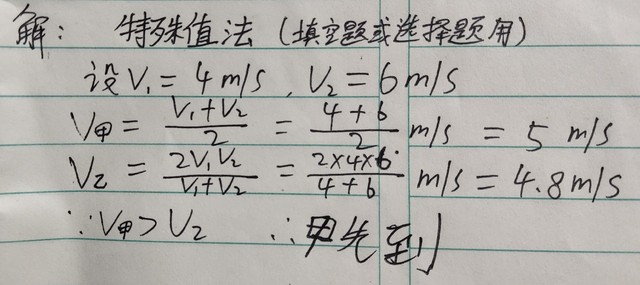 解: 特殊值法 (填空题或选择题用)
设V₁ = 4 m/s, V₂ = 6 m/s
V甲 = (V₁+V₂)/2 = (4+6)/2 m/s = 5 m/s
V乙 = 2V₁V₂/(V₁+V₂) = (2×4×6)/(4+6) m/s = 4.8 m/s
∵V甲>V乙 ∴甲先到